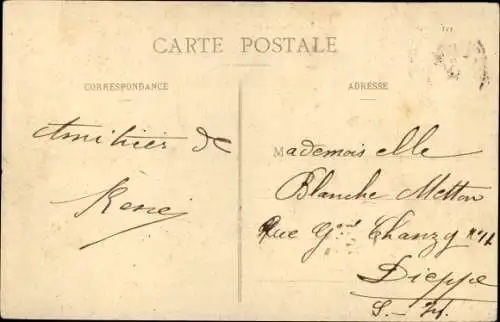 CARTE POSTALE
CORRESPONDANCE
Amitiées de
René
ADRESSE
Mademoiselle
Blanche Metton
Rue Gᵃˡ Chanzy Nº 12
Dieppe
S. - Inf.